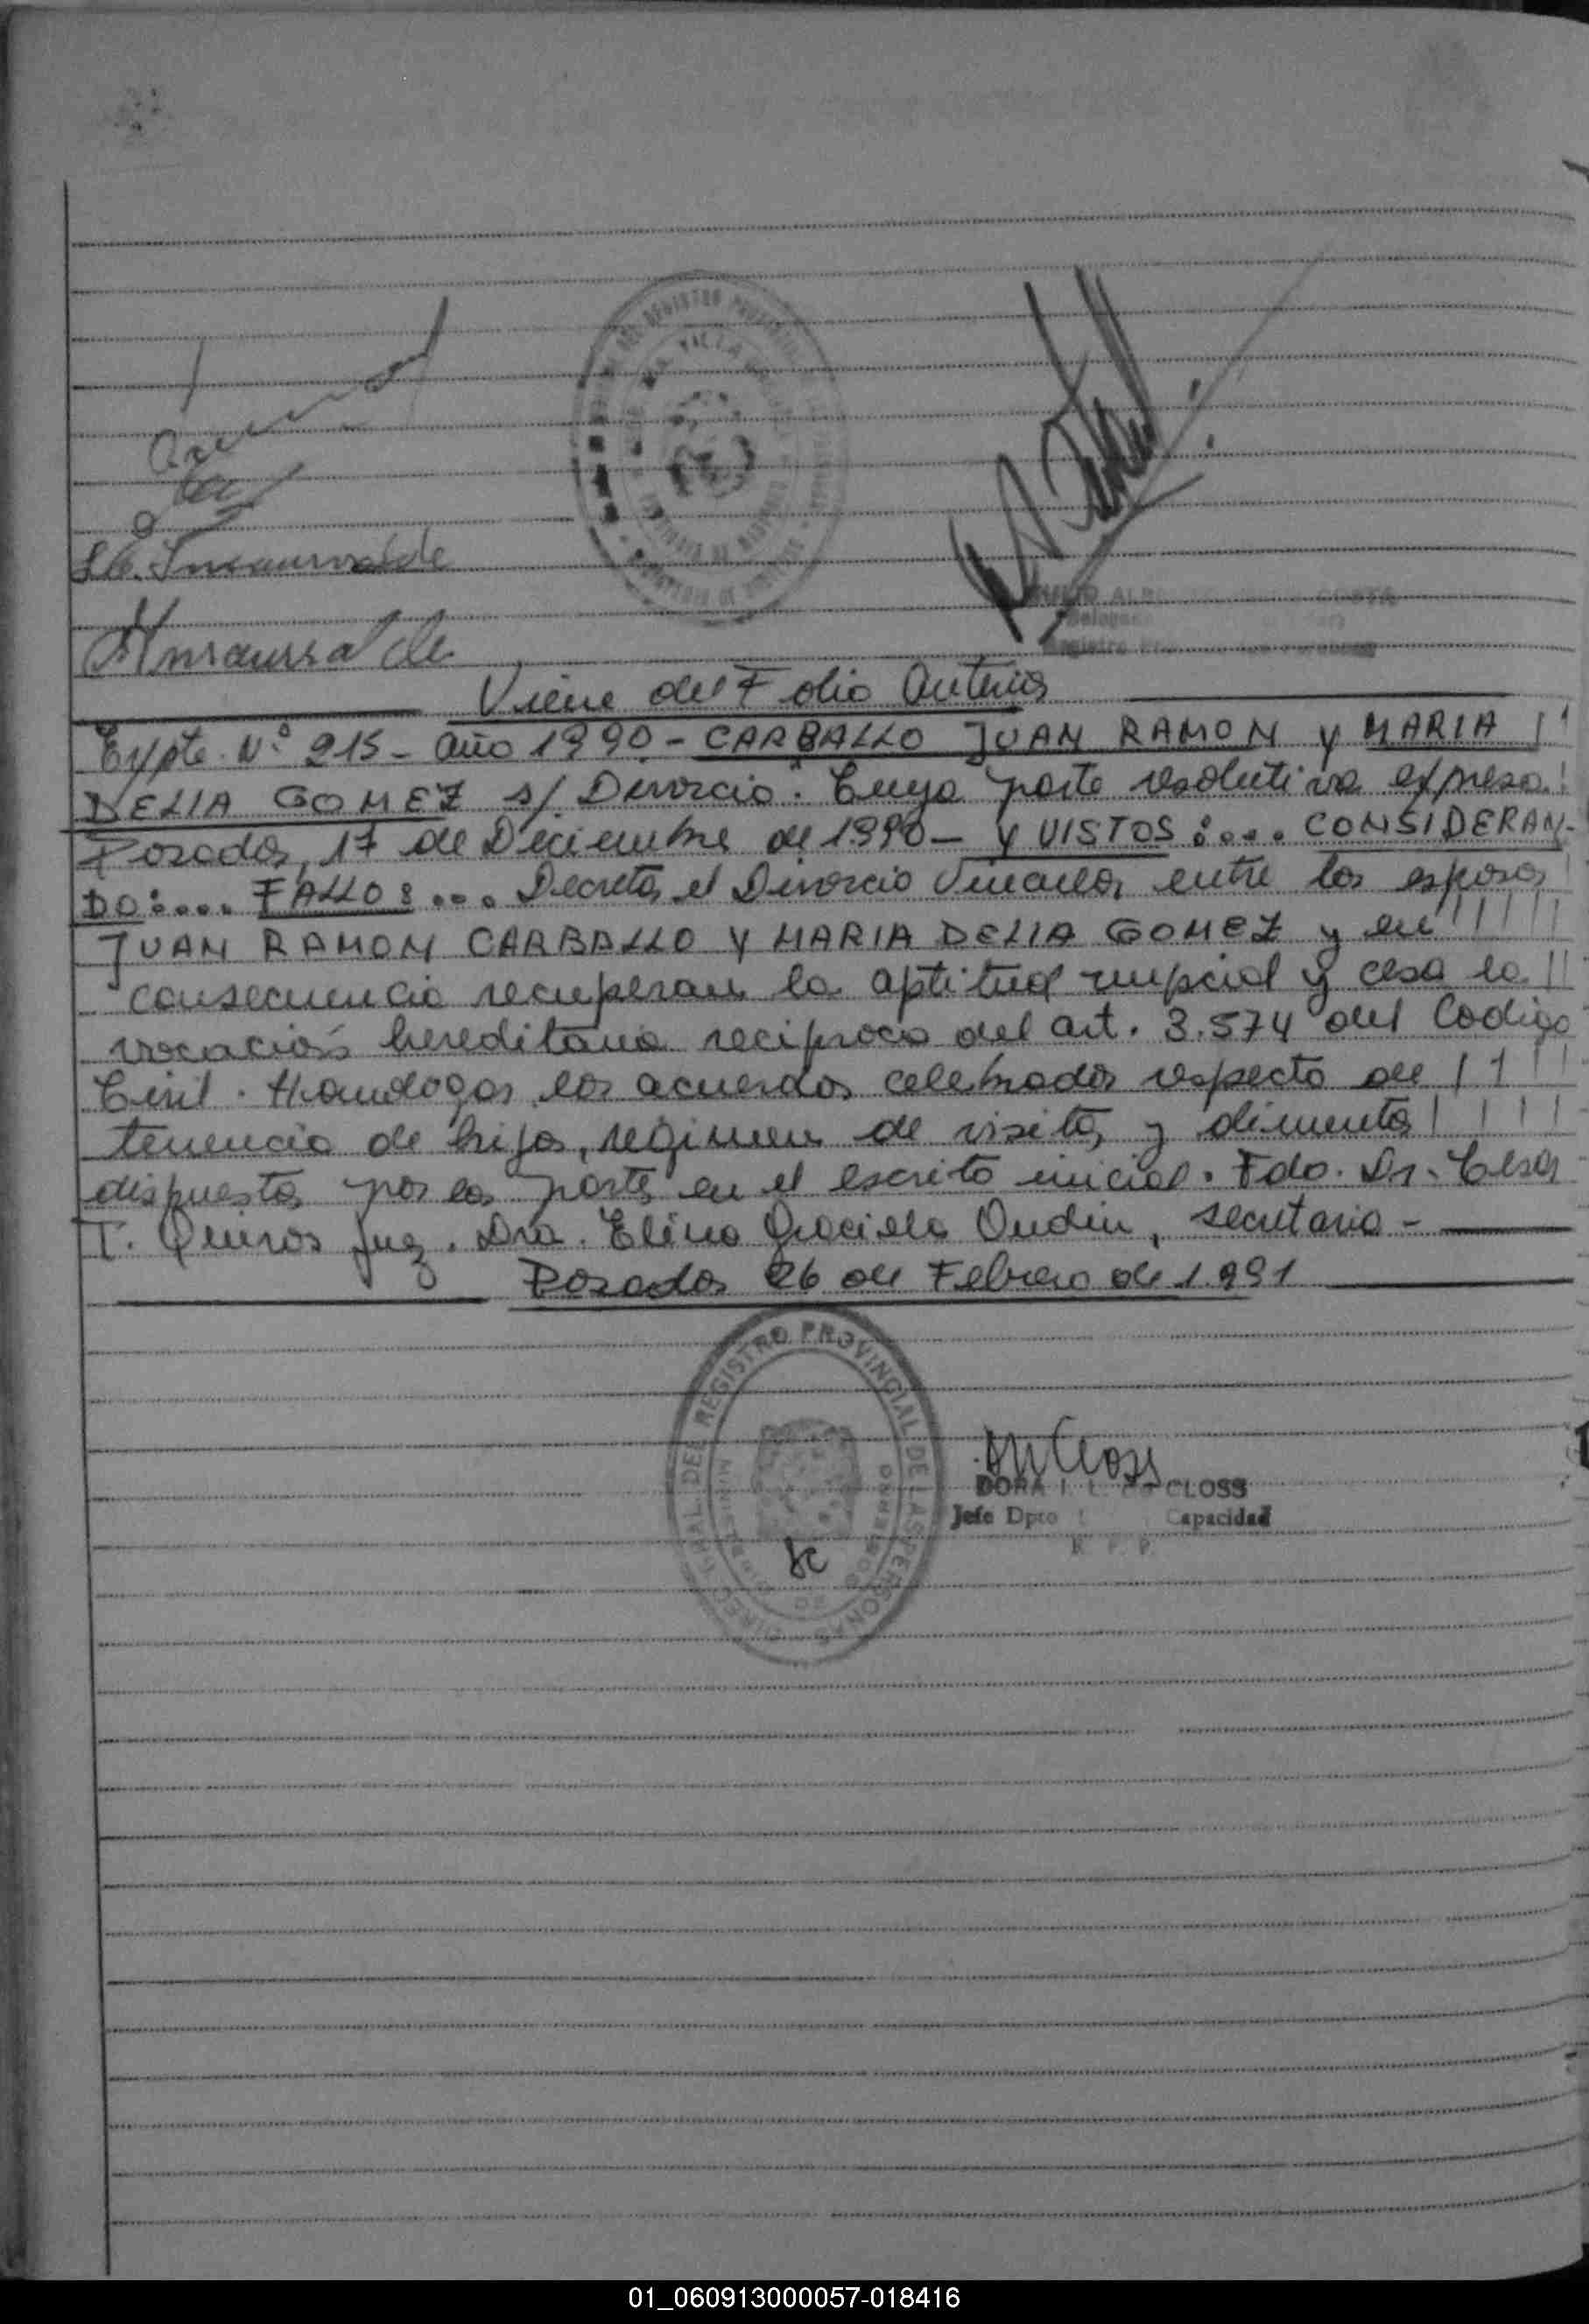 S.C. Insaurralde
Insaurralde
Viene del Folio Anterior
Expte. Nº 915 - Año 1990 - CARBALLO JUAN RAMON y MARIA
DELIA GOMEZ s/ Divorcio. Cuya parte resolutiva expresa:
Posadas, 17 de Diciembre de 1990 - Y VISTOS:... CONSIDERAN-
DO:.... FALLO:... Decretar el Divorcio Vincular entre los esposos
JUAN RAMON CARBALLO Y MARIA DELIA GOMEZ y en
consecuencia recuperan la aptitud nupcial y cesa la
vocación hereditaria reciproca del art. 3.574 del Codigo
Civil. Homologar los acuerdos celebrados respecto de
tenencia de hijos, regimen de visitas y alimentos
dispuestos por las partes en el escrito inicial. Fdo. Dr. Cesar
T. Quiros Juez. Dra. Elina Graciela Oudin, secretaria -
Posadas 26 de Febrero de 1.991
DIRECC GRAL. DEL REGISTRO PROVINCIAL DE LAS PERSONAS
DORA I. L. de CLOSS
Jefe Dpto Capacidad
R. P. P.
01_060913000057-018416